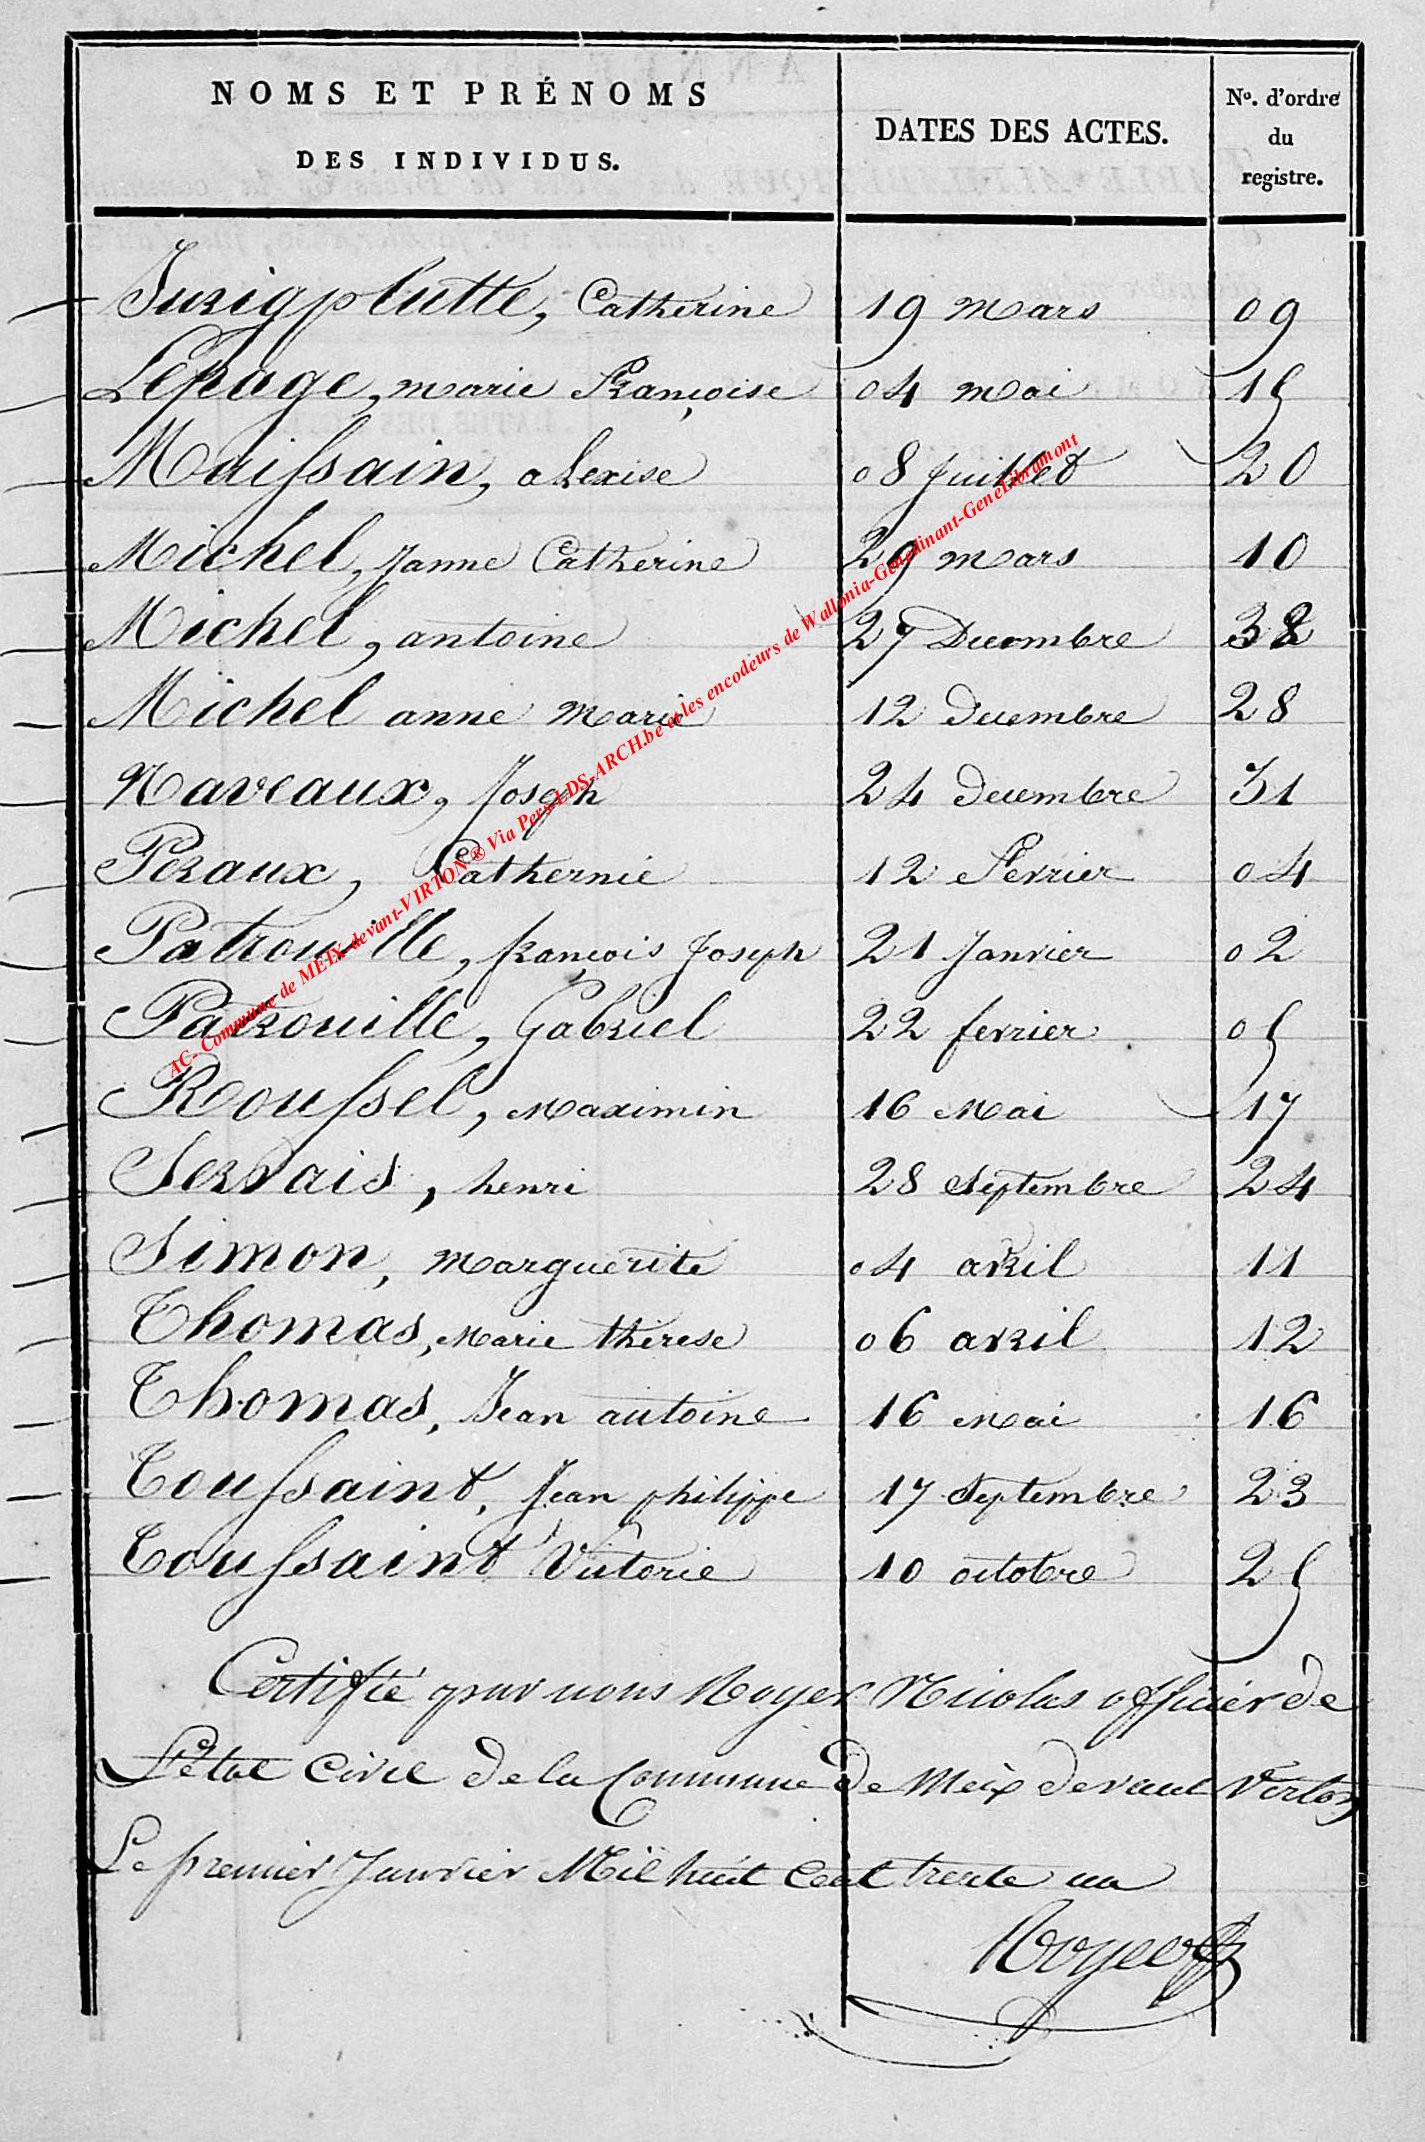 NOMS ET PRÉNOMS
DES INDIVIDUS.
DATES DES ACTES.
No. d'ordre
du
registre.
Jurigplutte, Catherine 19 mars 09
Lepage, marie Françoise 04 mai 15
Maissain, alexise 08 Juillet 20
Michel, Janne Catherine 29 mars 10
Michel, antoine 27 Decembre 32
Michel anne marie 12 decembre 28
Naveaux, Joseph 24 decembre 31
Peraux, Catherine 12 Fevrier 04
Patrouille, françois Joseph 21 Janvier 02
Patrouille, Gabriel 22 fevrier 05
Roussel, Maximin 16 Mai 17
Servais, henri 28 Septembre 24
Simon, Marguerite 04 avril 11
Thomas, Marie therese 06 avril 12
Thomas, Jean antoine 16 Mai 16
Toussaint, Jean philippe 17 Septembre 23
Toussaint Victorie 10 octobre 25
Certifié par nous Royer Nicolas officier de
L'état Civil de la Commune de Meix devant Virton
Le premier Janvier Mil huit Cent trente un
Royer
AC- Commune de MEIX-devant-VIRTON® Via Pers-LDS-ARCH.be et les encodeurs de Wallonia-Genedinant-GeneLibramont